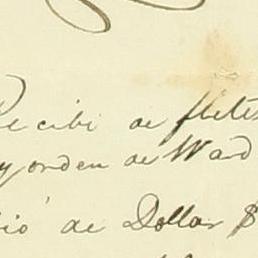 Recibi de fletes
y orden de Ward
io de Dollar $